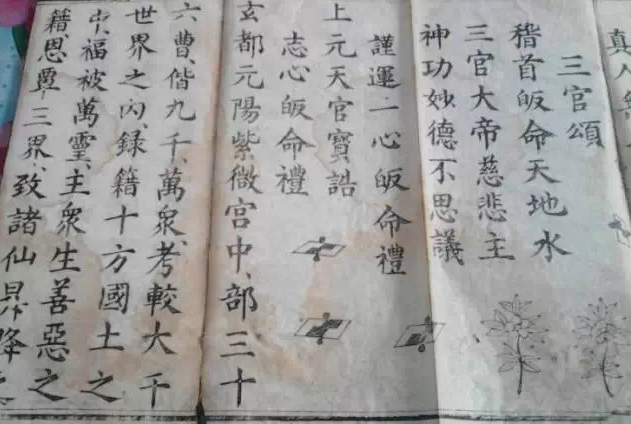 真人無
三官頌
稽首皈命天地水
三官大帝慈悲主
神功妙德不思議
謹運一心皈命禮
上元天官寶誥
志心皈命禮
玄都元陽紫微宮中、部三十
六曹、偕九千、萬衆、考較大千
世界之內、錄籍十方國土之
中、福被萬靈、主衆生善惡之
籍、恩覃三界、致諸仙昇降